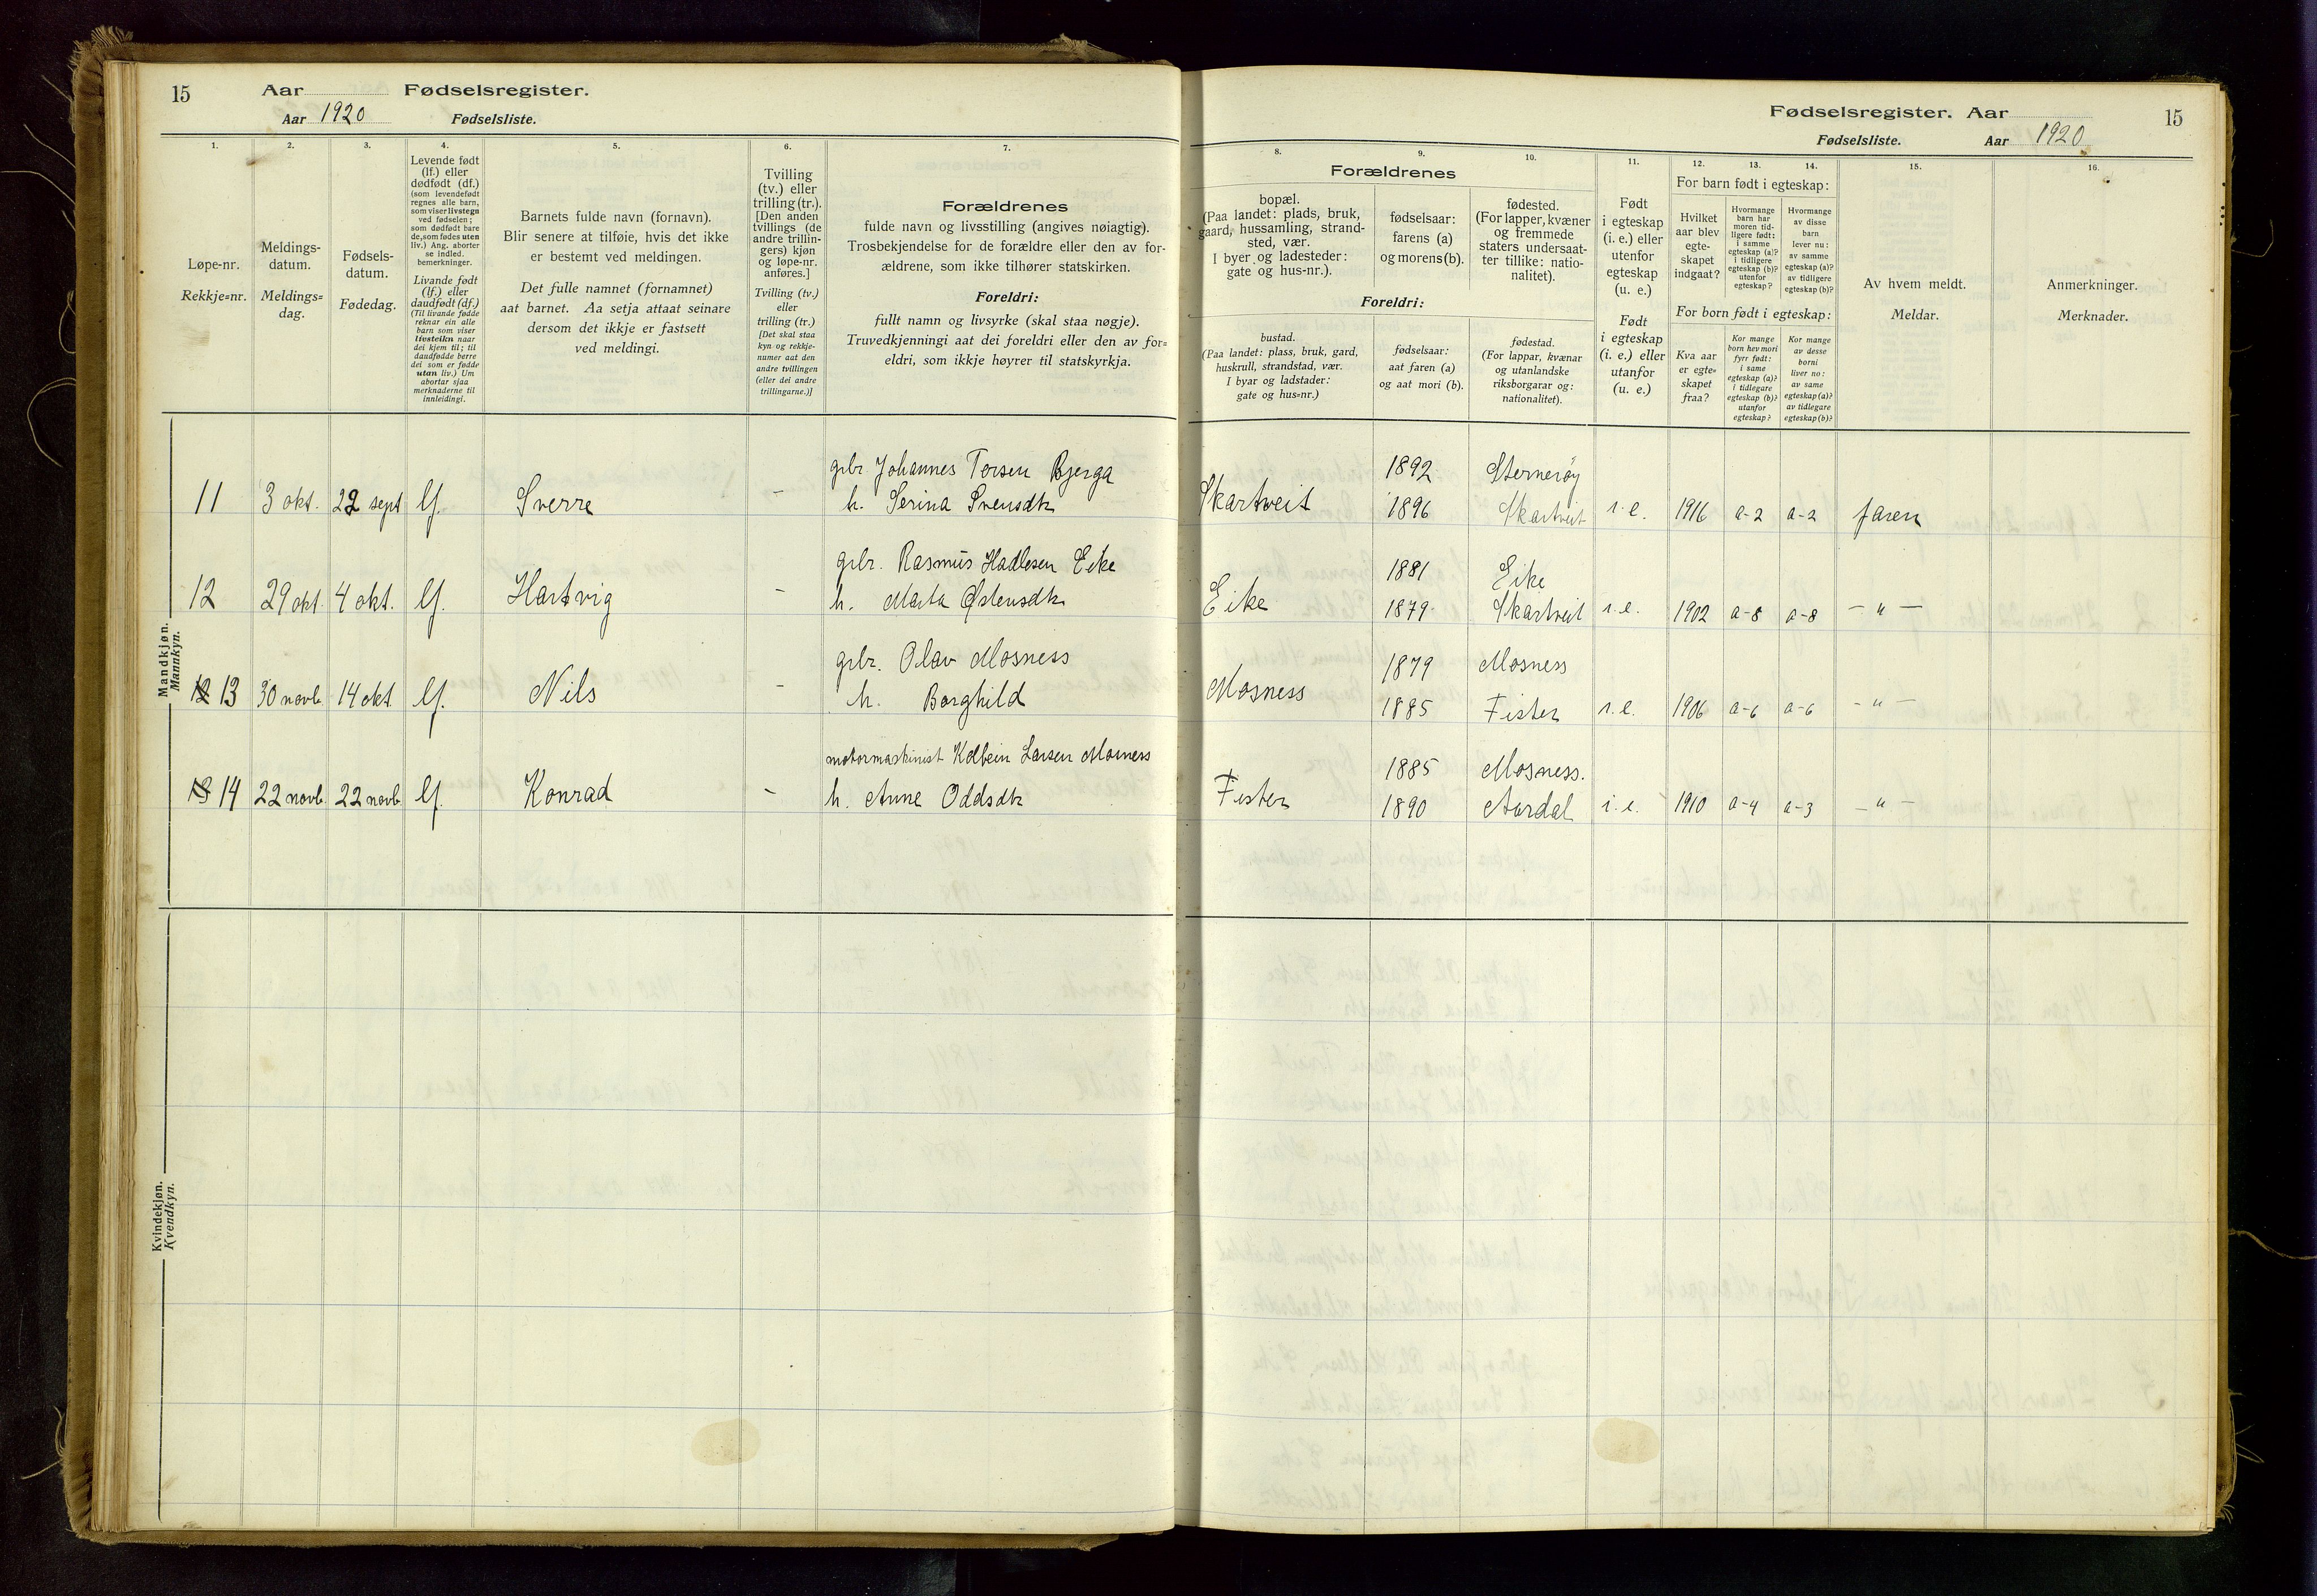 15
Aar
Fødselsregister.
Aar 1920
Fødselsliste.
1.
Løpe-nr.
Rekkje=nr.
2.
Meldings-
datum.
Meldings=
dag.
3.
Fødsels-
datum.
Fødedag.
4.
Levende født
(lf.) eller
dødfødt (df.)
(som levendefødt
regnes alle barn,
som viser livstegn
ved fødselen;
som dødfødt bare
de, som fødes uten
liv.) Ang. aborter
se indled.
bemerkninger.
Livande født
(lf.) eller
daudfødt (df.)
(Til livande fødde
reknar ein alle
barn som viser
livsteikn naar
dei kjem til; til
daudfødde berre
dei som er fødde
utan liv.) Um
abortar sjaa
merknaderne til
innleidingi.
5.
Barnets fulde navn (fornavn).
Blir senere at tilføie, hvis det ikke
er bestemt ved meldingen.
Det fulle namnet (fornamnet)
aat barnet. Aa setja attaat seinare
dersom det ikkje er fastsett
ved meldingi.
6.
Tvilling
(tv.) eller
trilling (tr.).
[Den anden
tvillings (de
andre trillin-
gers) kjøn
og løpe-nr.
anføres.]
Tvilling (tv.)
eller
trilling (tr.)
[Det skal staa
kyn og rekkje-
numer aat den
andre tvillingen
(eller dei andre
trillingarne.)]
7.
Forældrenes
fulde navn og livsstilling (angives nøiagtig).
Trosbekjendelse for de forældre eller den av for-
ældrene, som ikke tilhører statskirken.
Foreldri:
fullt namn og livsyrke (skal staa nøgje).
Truvedkjenningi aat dei foreldri eller den av for=
eldri, som ikkje høyrer til statskyrkja.
Fødselsregister. Aar
15
Fødselsliste.
Aar 1920
Forældrenes
8.
bopæl.
(Paa landet: plads, bruk,
gaard, hussamling, strand-
sted, vær.
I byer og ladesteder:
gate og hus-nr.).
9.
fødselsaar:
farens (a)
og morens (b).
10.
fødested.
(For lapper, kvæner
og fremmede
staters undersaat-
ter tillike: natio-
nalitet).
Foreldri:
bustad.
(Paa landet: plass, bruk, gard,
huskrull, strandstad, vær.
I byar og ladstader:
gate og hus=nr.)
fødselsaar:
aat faren (a)
og aat mori (b).
fødestad.
(For lappar, kvænar
og utanlandske
riksborgarar og:
nationalitet).
11.
Født
i egteskap
(i. e.) eller
utenfor
egteskap
(u. e.)
Født
i egteskap
(i. e.) eller
utanfor
(u. e.)
12.
13.
14.
For barn født i egteskap:
Hvilket
aar blev
egte-
skapet
indgaat?
Hvormange
barn har
moren tid-
ligere født:
i samme
egteskap (a)?
i tidligere
egteskap (b)?
utenfor
egteskap?
Hvormange
av disse
barn
lever nu:
av samme
egteskap (a)?
av tidligere
egteskap (b)?
For born født i egteskap:
Kva aar
er egte=
skapet
fraa?
Kor mange
born hev mori
fyrr født:
i same
egteskap (a)?
i tidlegare
egteskap (b)?
utanfor
egteskap?
Kor mange
av desse
borni
liver no:
av same
egteskap (a)?
av tidlegare
egteskap (b)?
15.
Av hvem meldt.
Meldar.
16.
Anmerkninger.
Merknader.
Mandkjøn.
Mannkyn.
gbr. Johannes Torsen Bjerga 1892 Sternerøy
11 3 okt. 22 sept lf. Sverre - h. Serina Svensdtr Skartveit 1896 Skartveit i. e. 1916 a-2 a-2 faren
gbr. Rasmus Hadlesen Eike 1881 Eike
12 29 okt. 4 okt. lf. Hartvig - h. Marta Østensdtr Eike 1879 Skartveit i. e. 1902 a-8 a-8 - " -
gbr. Olav Mosness 1879 Mosness
12 13 30 novb. 14 okt. lf. Nils - h. Borghild Mosness 1885 Fister i. e. 1906 a-6 a-6 - " -
motormaskinist Kolbein Larsen Mosness 1885 Mosness.
13 14 22 novb. 22 novb. lf. Konrad - h. Anne Oddsdtr Fister 1890 Aardal i. e. 1910 a-4 a-3 - " -
Kvindekjøn.
Kvendkyn.